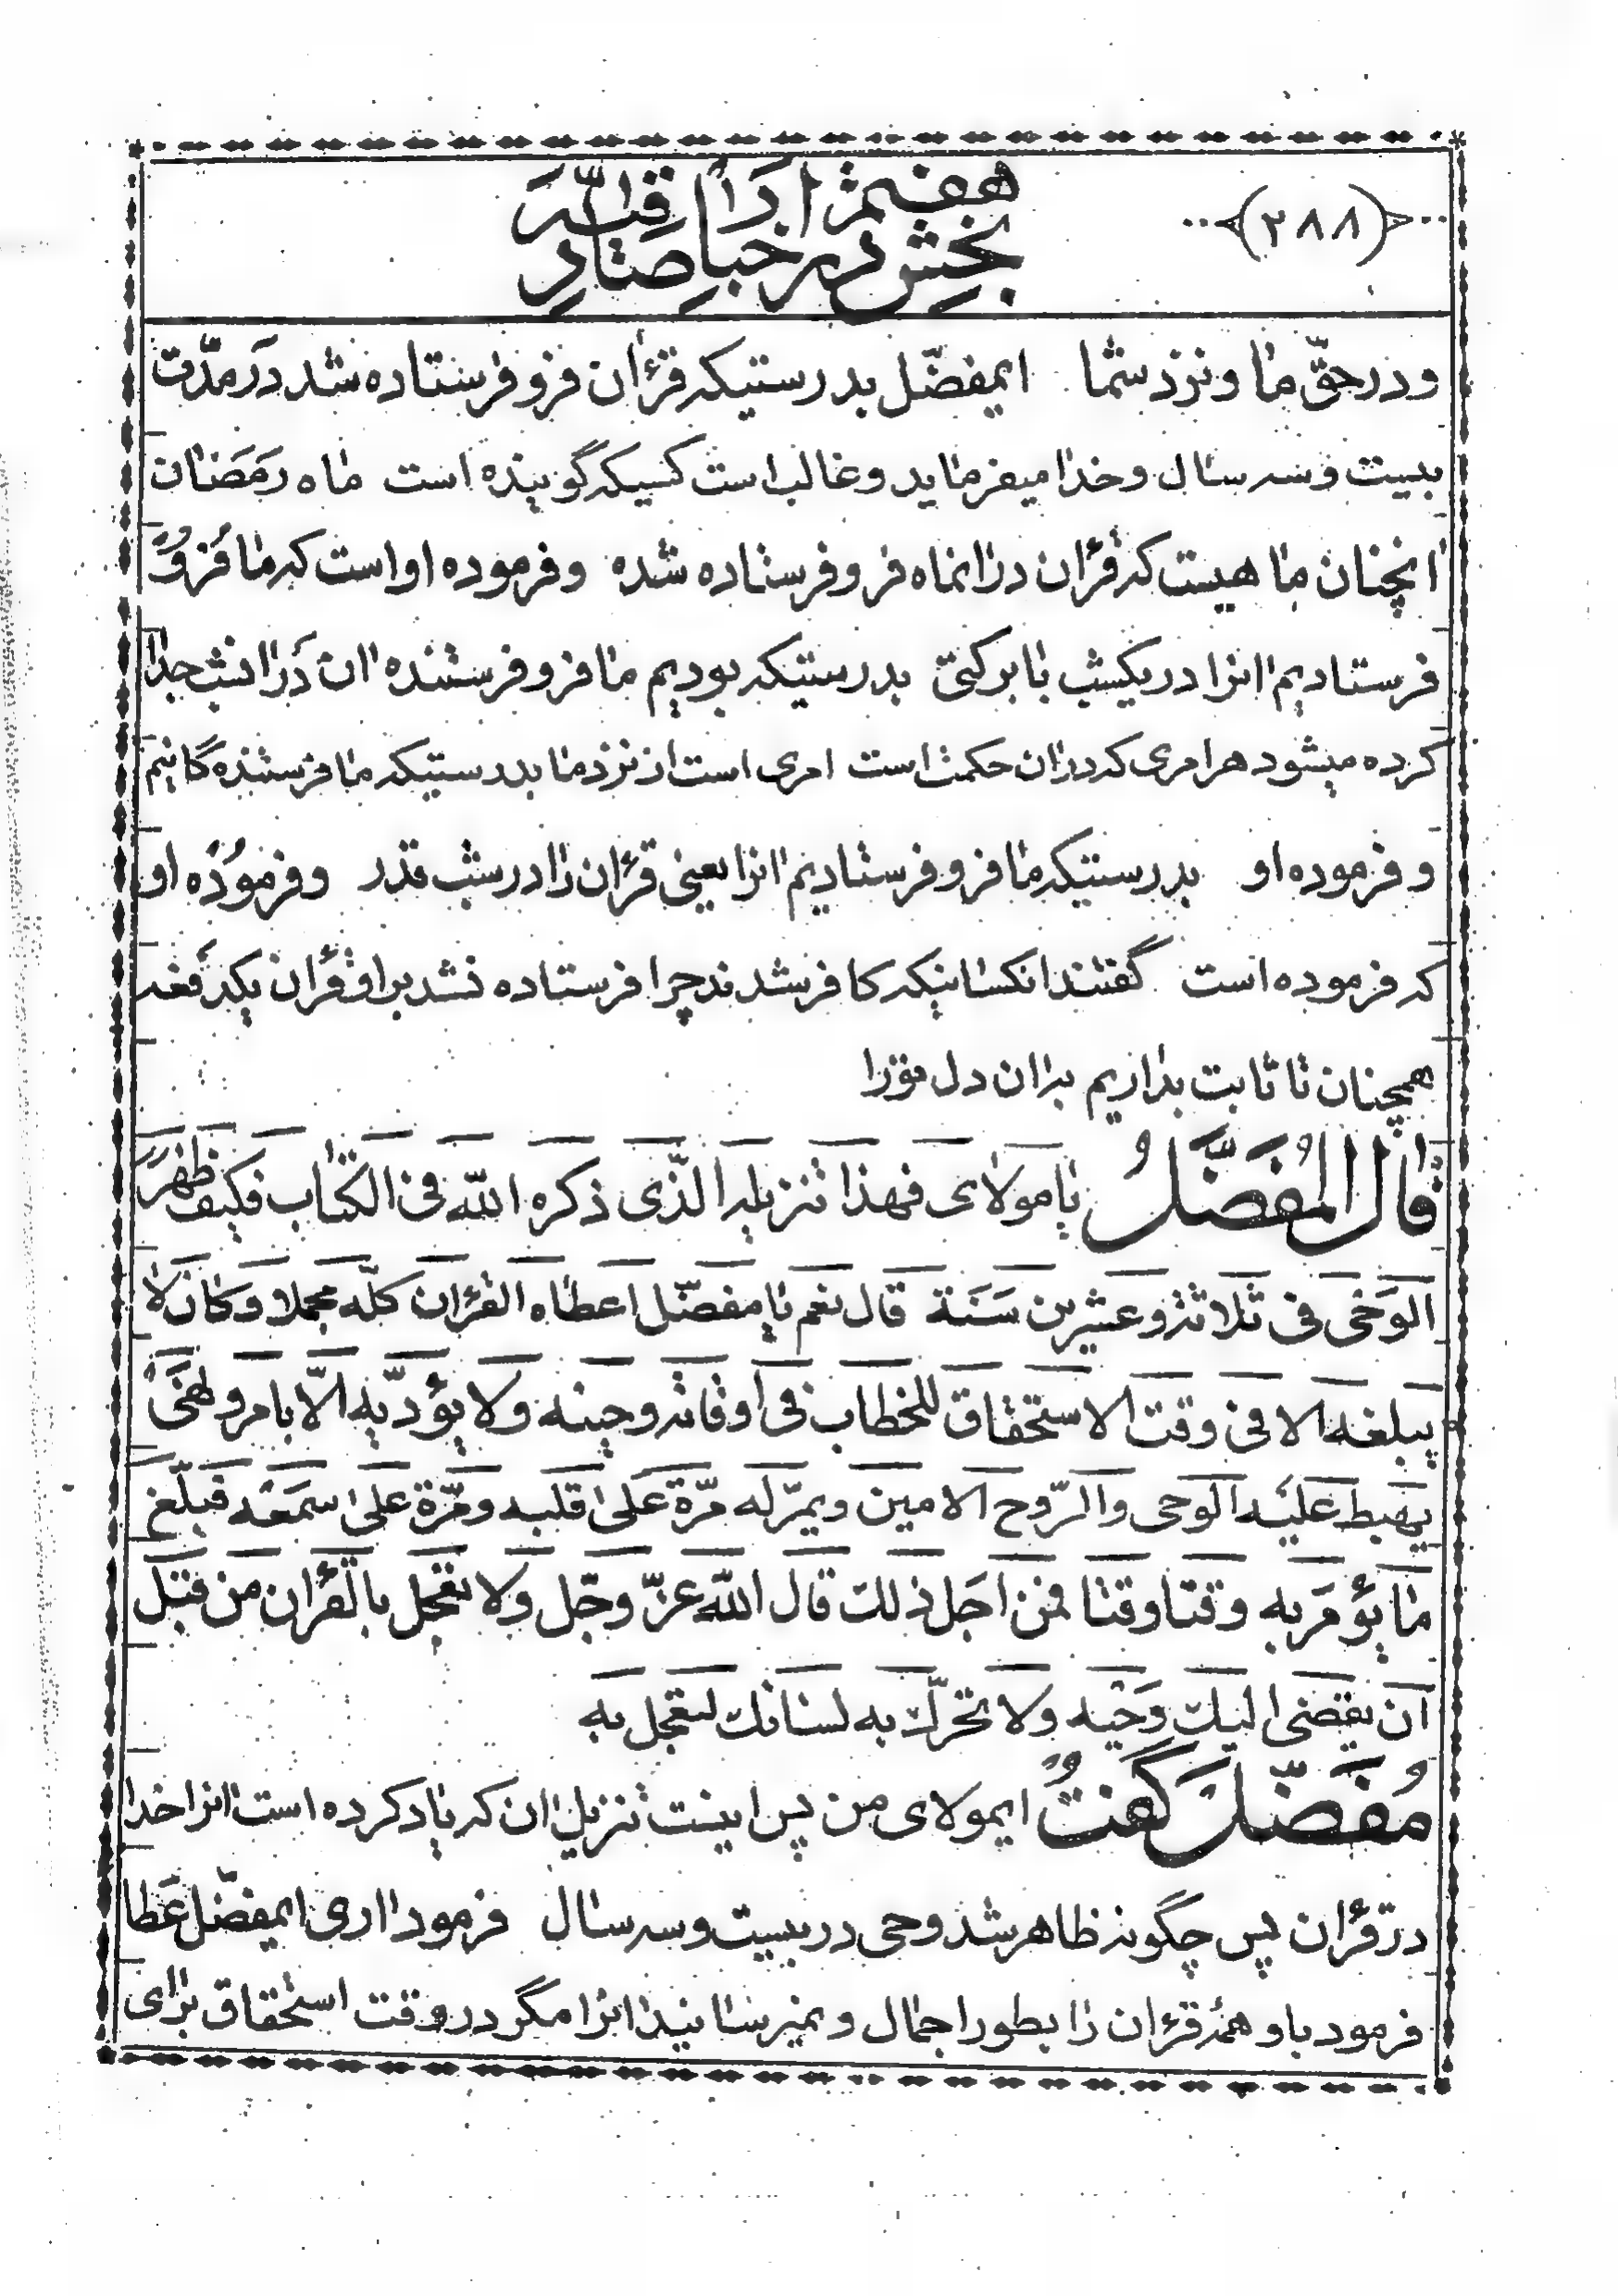 (۲۸۸)
بخش هفتم در اخبار صادره
و در حقّ ما و نزد شما ایمفضّل بدرستیکه قرءان فرو فرستاده شد در مدّت
بیست و سه سال و خدا میفرماید و غالب است کسیکه گوینده است ماه رمضان
انچنان ماهیست که قرءان در انماه فرو فرستاده شده و فرموده او است که ما فرو
فرستادیم انرا در یکشب با برکتی بدرستیکه بودیم ما فرو فرستنده ان در انشب جدا
کرده میشود هر امری که در ان حکمت است امری است از نزد ما بدرستیکه ما فرستنده‌گانیم
و فرموده او بدرستیکه ما فرو فرستادیم انرا یعنی قرءان را در شب قدر و فرموده او
که فرموده است گفتند انکسانیکه کافر شدند چرا فرستاده نشد بر او قرءان یکدفعه
همچنان تا ثابت بداریم بر ان دل تو را
قال المُفَضَّلُ یا مولای فهذا تنزیله الّذی ذکره اللّه فی الکتاب فکیف ظهر
الوَحی فی ثلاثة و عشرین سَنَة قال نعم یا مفضّل اعطاه القرءان کلّه مجملا و کان لا
یبلغه الا فی وقت الاستحقاق للخطاب فی اوقاته و حینه و لا یؤدّیه الّا بامر و نهی
یهبط علیه الوحی و الرّوح الامین و یمرّ له مرّة علی قلبه و مرّة علی سمعه فبلّغ
ما یؤمر به وقتا وقتا فمن اجل ذلك قال اللّه عزّ و جّل و لا تعجل بالقرءان من قبل
ان یقضی الیك وَحیه و لا تحرّك به لسانك لتعجل به
مُفَضَّل گفت ایمولای من پس اینست تنزیل ان که یاد کرده است انرا خدا
در قرءان پس چگونه ظاهر شد وحی در بیست و سه سال فرمود اری ایمفضّل عَطا
فرمود باو همۀ قرءان را بطور اجمال و نمیرسانید انرا مگر در وقت استحقاق برای